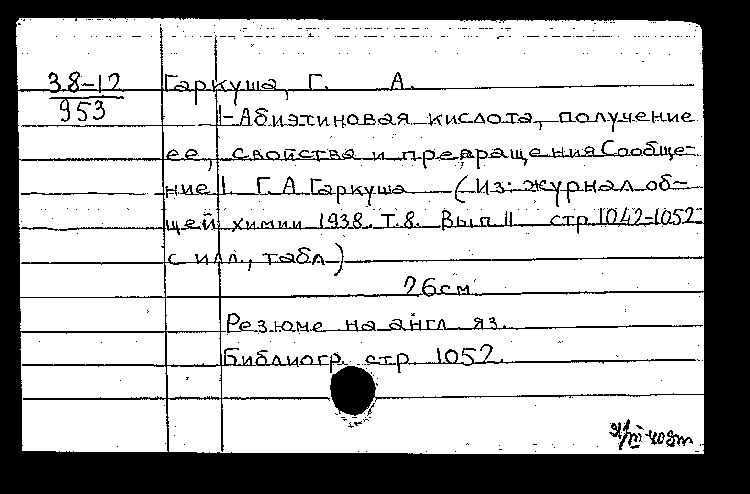 38-12
953
Гаркуша, Г. А.
1-Абиэтиновая кислота, получение
ее, свойства и превращения Сообще-
ние 1. Г. А. Гаркуша (Из: журнал об-
щей химии 1938. Т. 8. Вып 11 стр. 1042-1052
с илл., табл.)
26 см.
Резюме на англ. яз.
Библиогр. стр. 1052.